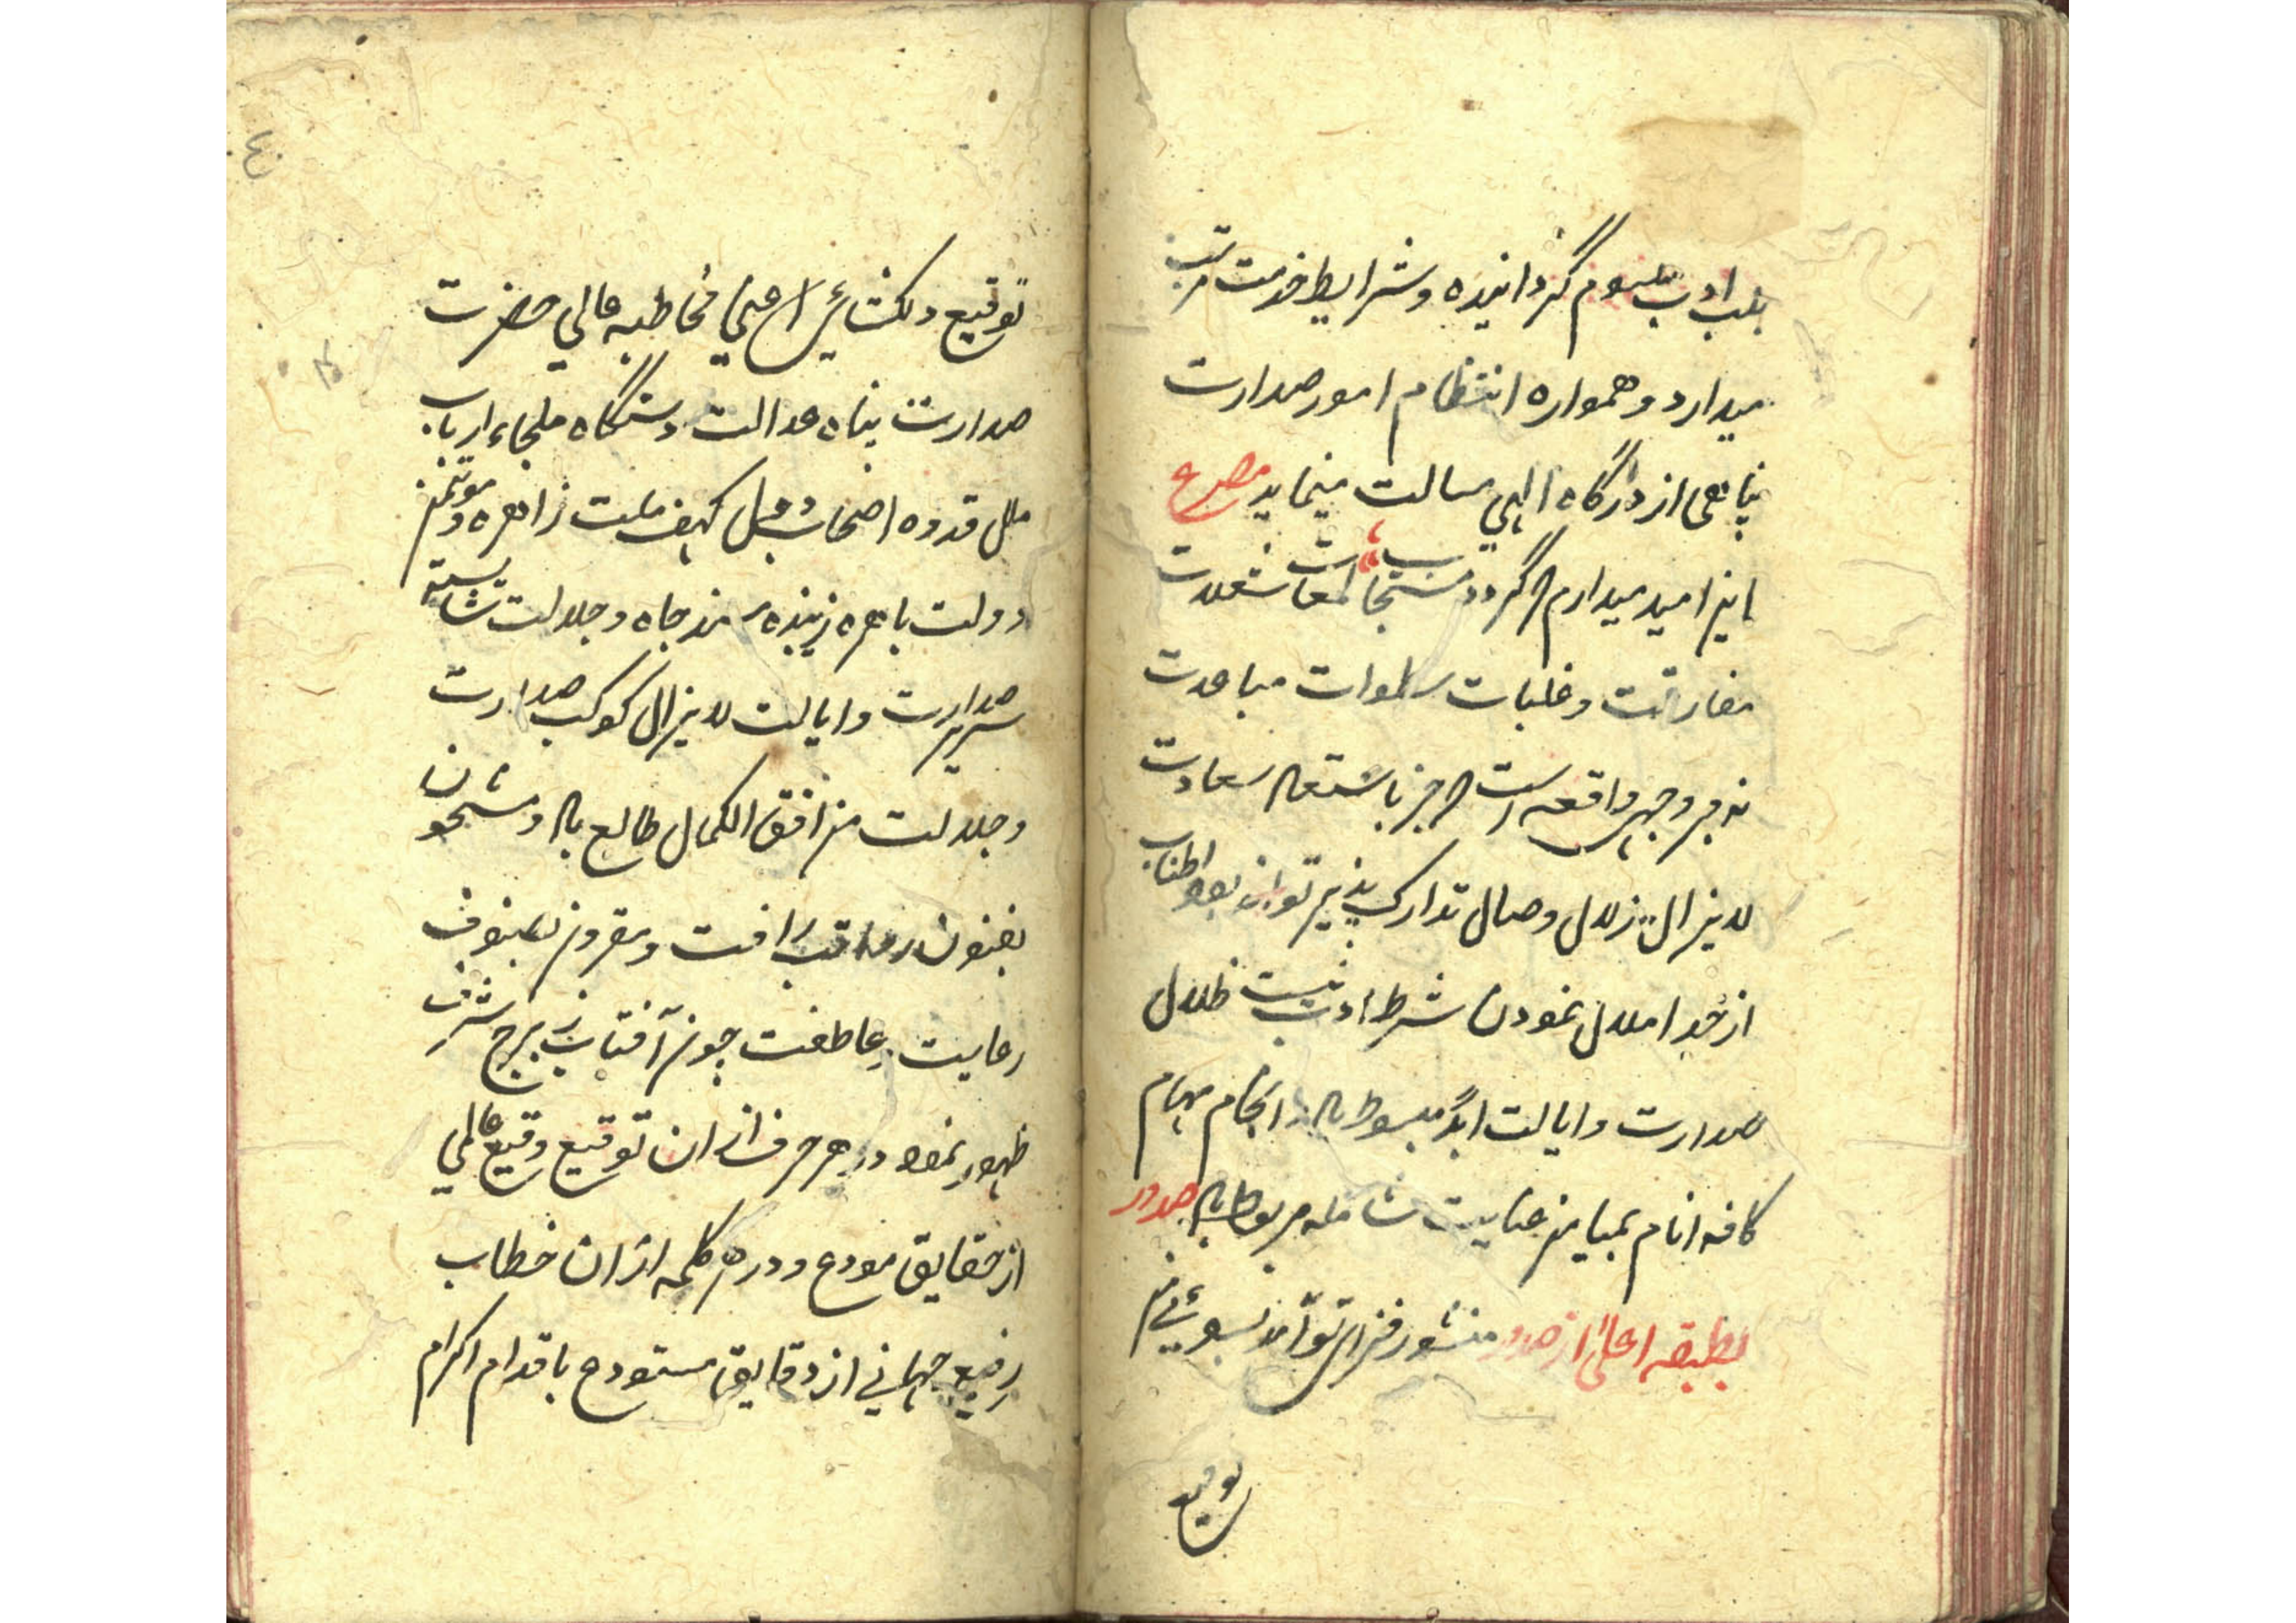 بلب ادب ملثوم گردانیده و شرایط خدمت مرتب
میدارد و همواره انتظام امور صدارت
پناهی از درگاه الهی مسالت مینماید مصرع
اینرا مید میدارم که گردد مستجاب
مفارقت و غلبات سطوات مباعدت
نه بر وجهی واقعه است که جز باشتعال سعادت
لایزال زلال وصال تدارک پذیر تواند بود اطناب
از حد املال نمودن شرط ادب نیست ظلال
صدارت و ایالت ابدا مبسوط باد انجام مهام
کافه انام بمیامن عنایت شامله مربوط باد صدور
بطبقه اعلی از صدور منشور
توقیع
٤٠
توقیع دلکشای اعنی مخاطبه عالی حضرت
صدارت پناه عدالت دستگاه ملجاء ارباب
ملل قدوه اصحاب دول کهف ملت زاهره و موتمن
دولت باهره زیبنده مسند جاه و جلالت شایسته
سریر صدارت و ایالت لایزال کوکب صدارت
و جلالت من افق الکمال طالع باد و مشحون
بفنون مراتب رافت و مقرون بصنوف
رعایت و عاطفت چون آفتاب از برج شرف
ظهور نمود در هر حرف از ان توقیع وقیع عالمی
از حقایق مودع و در هر کلمه از ان خطاب
رفیع جهانی از دقایق مستودع باقدام اکرام